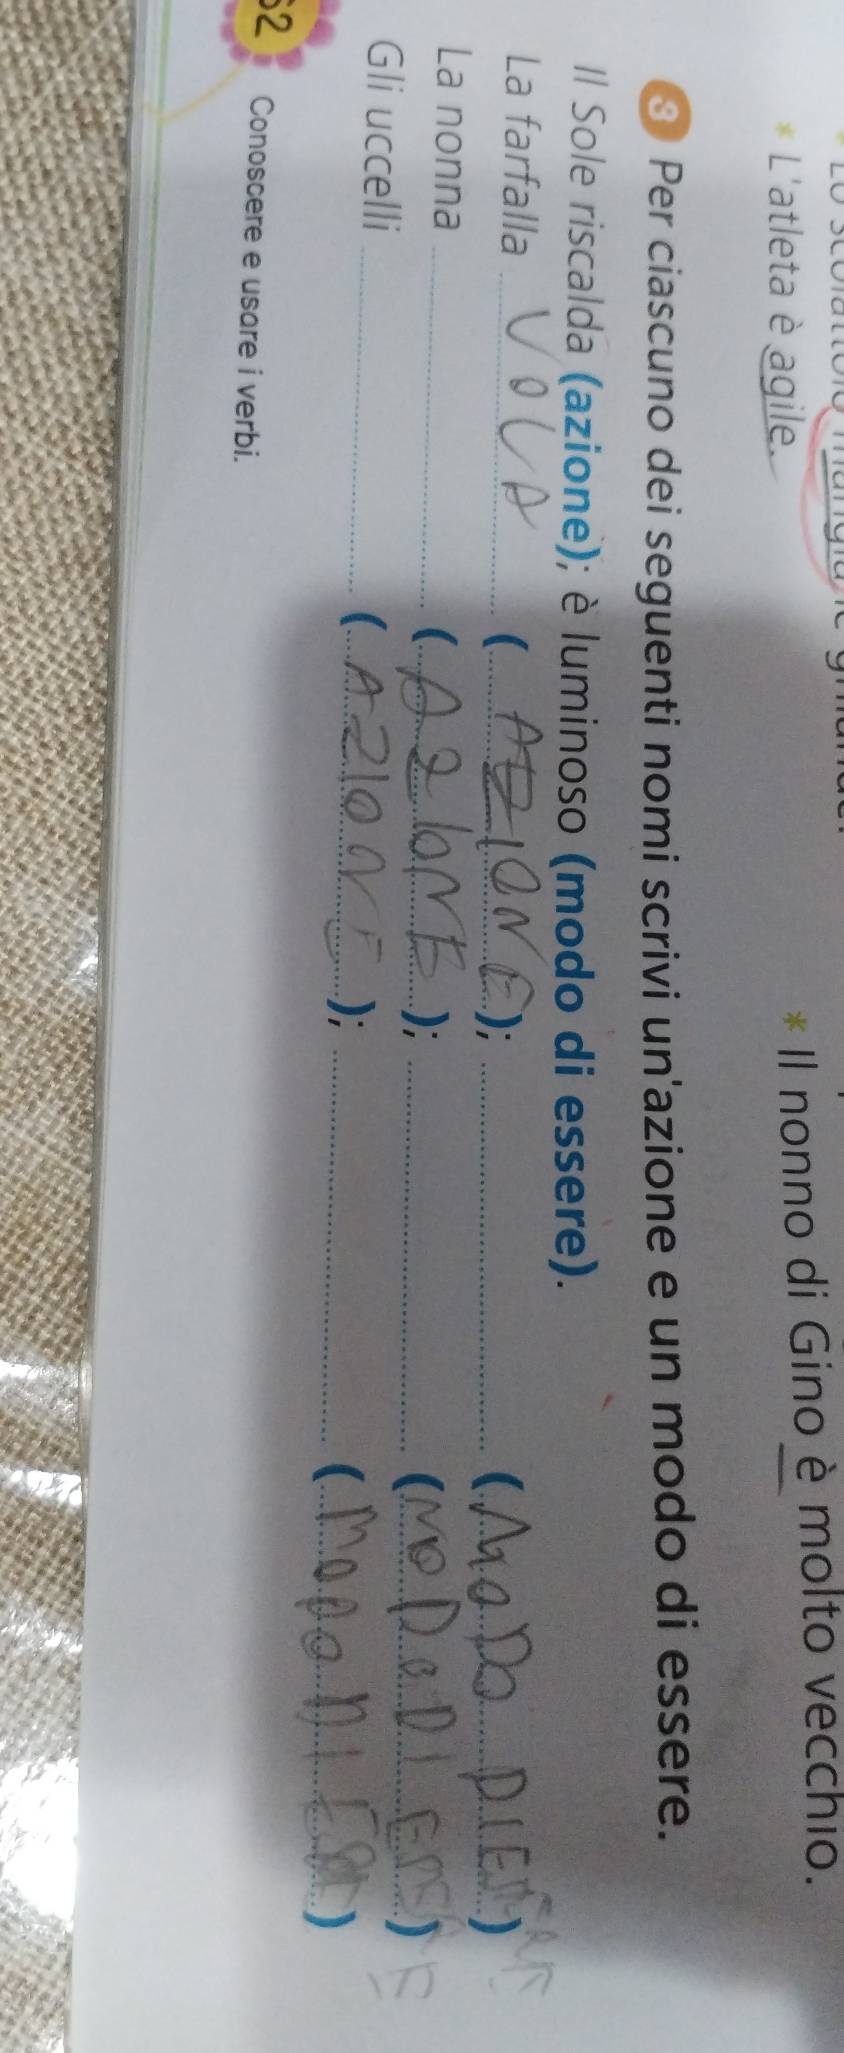 * L'atleta è agile.
* Il nonno di Gino è molto vecchio.
3 Per ciascuno dei seguenti nomi scrivi un'azione e un modo di essere.
Il Sole riscalda (azione); è luminoso (modo di essere).
La farfalla VOLA (AZIONE); (MODO DI ESSERE)
La nonna (AZIONE); (MODO DI ESSERE)
Gli uccelli (AZIONE); (MODO DI
62 Conoscere e usare i verbi.